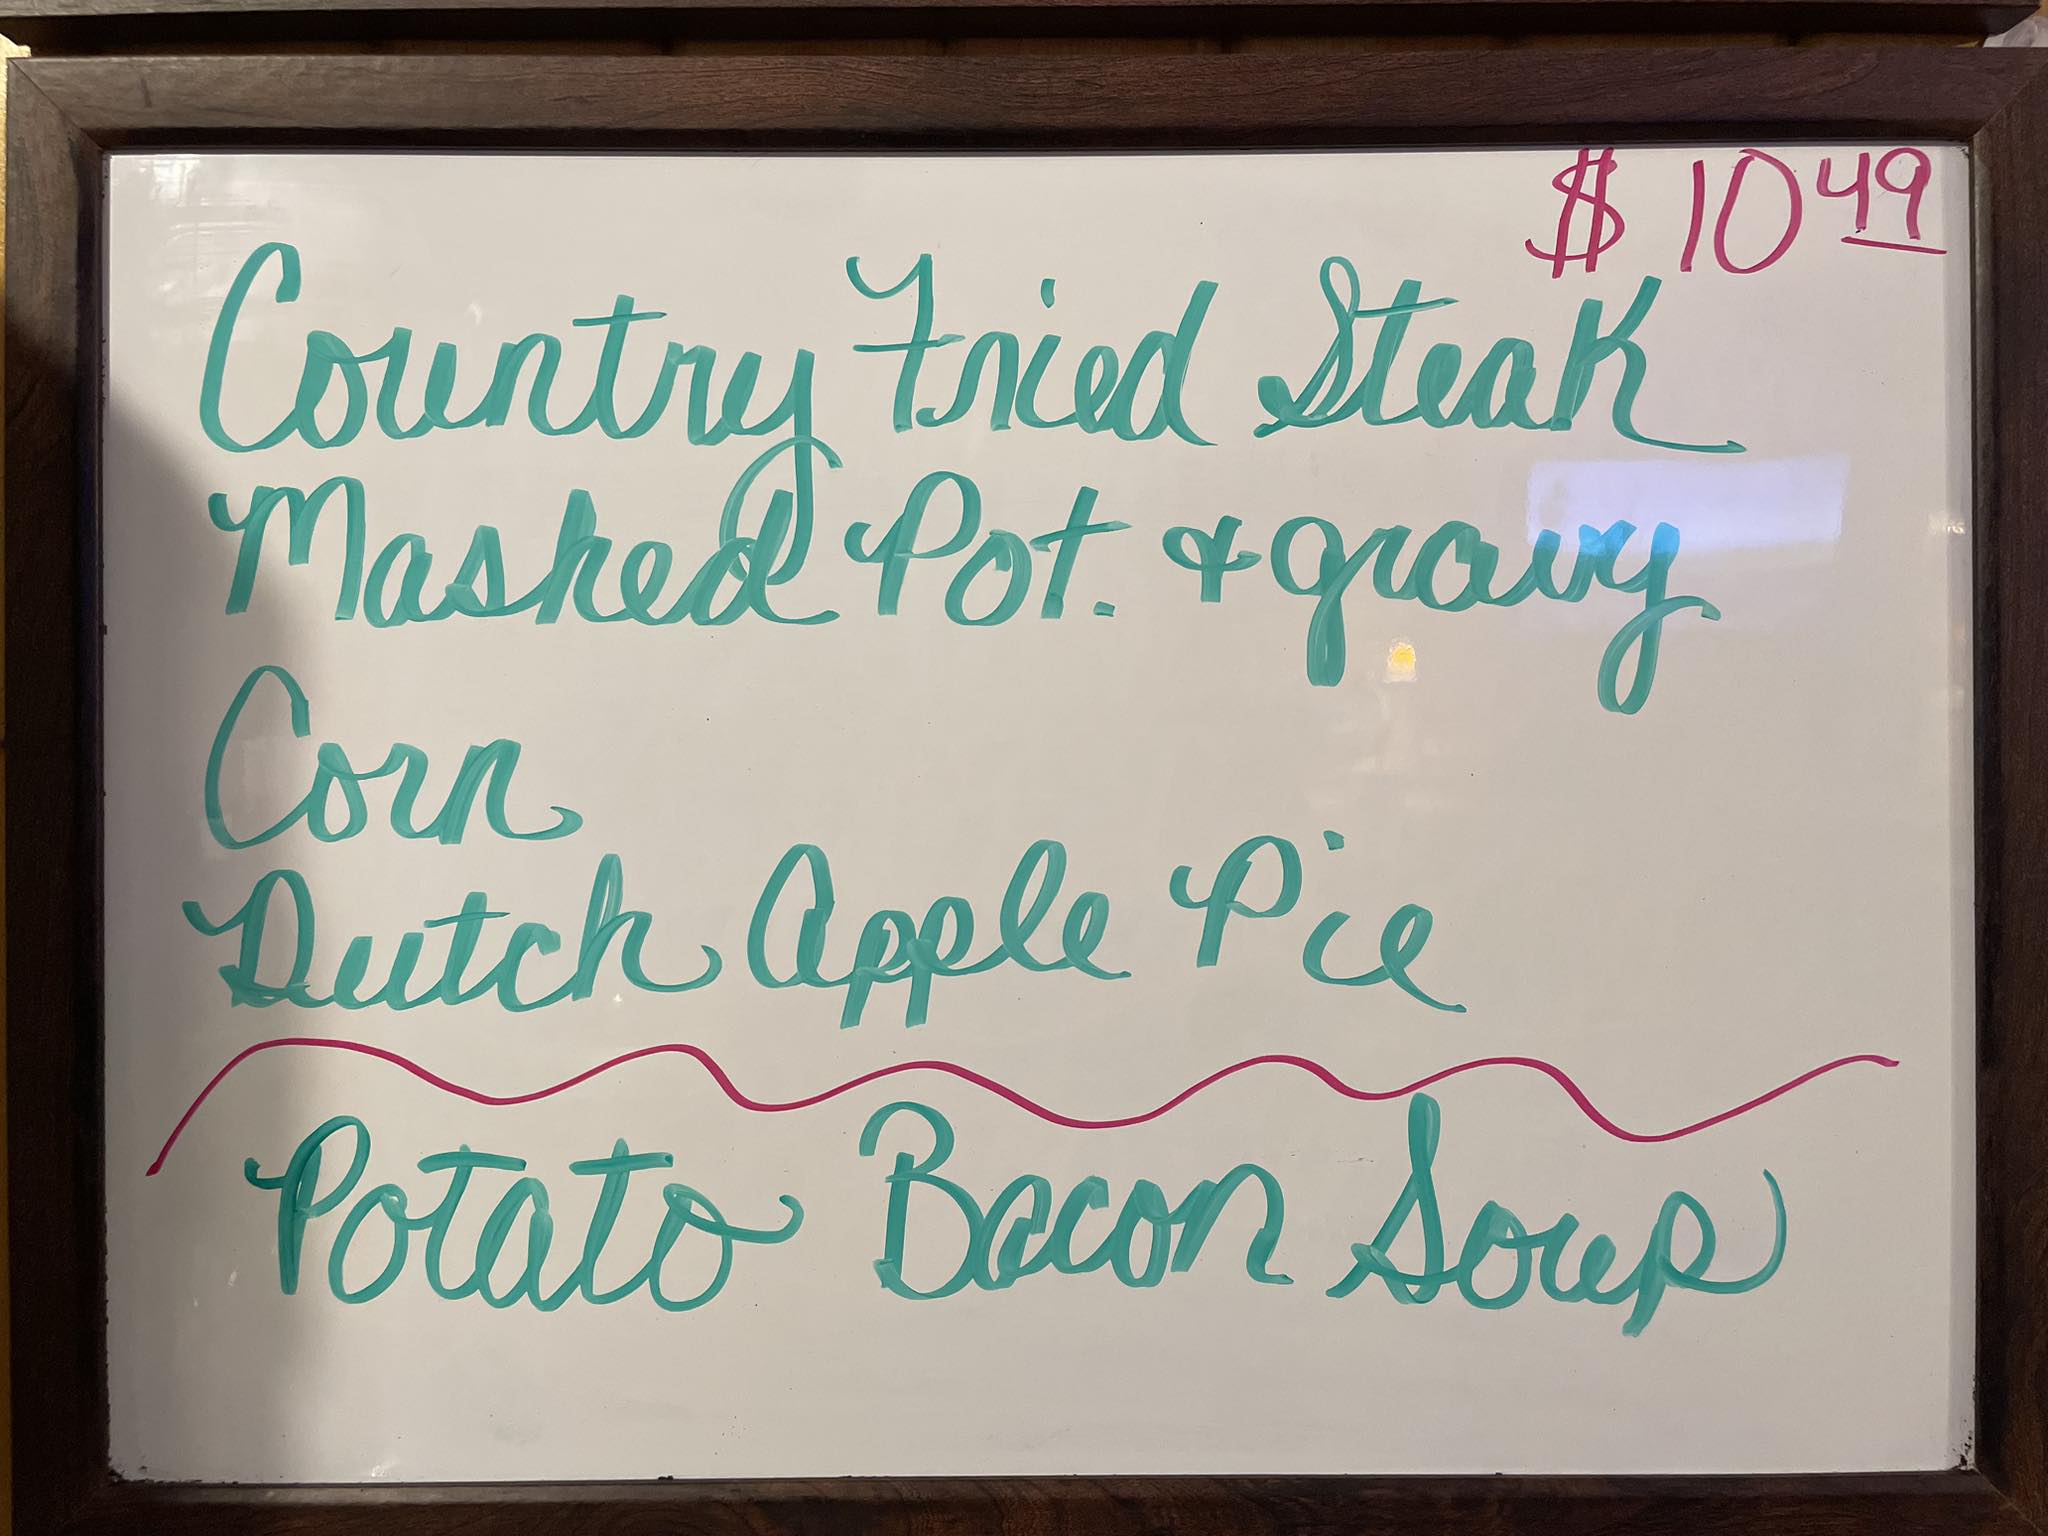 $10.49
Country Fried Steak
Mashed Pot. & gravy
Corn
Dutch Apple Pie
Potato Bacon Soup